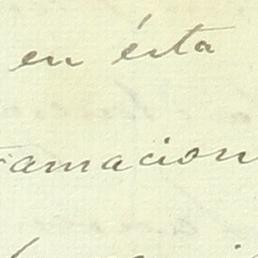 en ésta
amacion